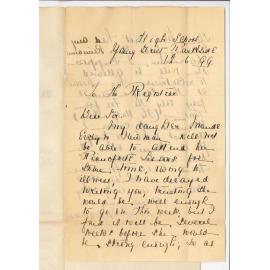 High School
Young Street
1 . 6 . 99
To the Registrar
Dear Sir
My daughter Maude
Evelyn will not
be able to attend her
Pianoforte Lessons for
some time, owing to
illness, I have delayed
writing you, trusting she
would be well enough
to go on this week, but I
find it will be several
weeks before she would
be strong enough, so as